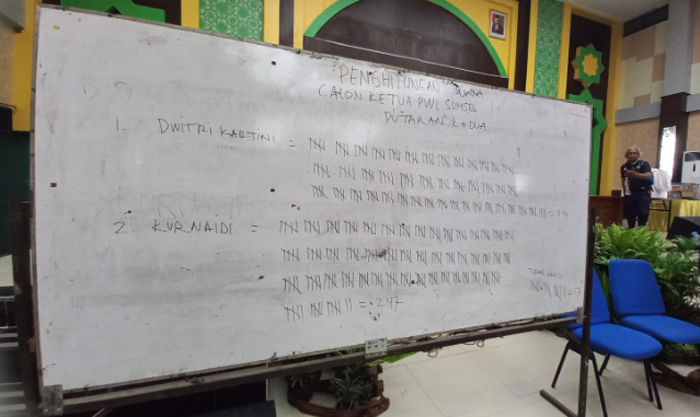 PENGHITUNGAN SUARA
CALON KETUA PWI SUMSEL
PUTARAN KEDUA
1. DWITRI KARTINI =
2. KURNAIDI =
= 247